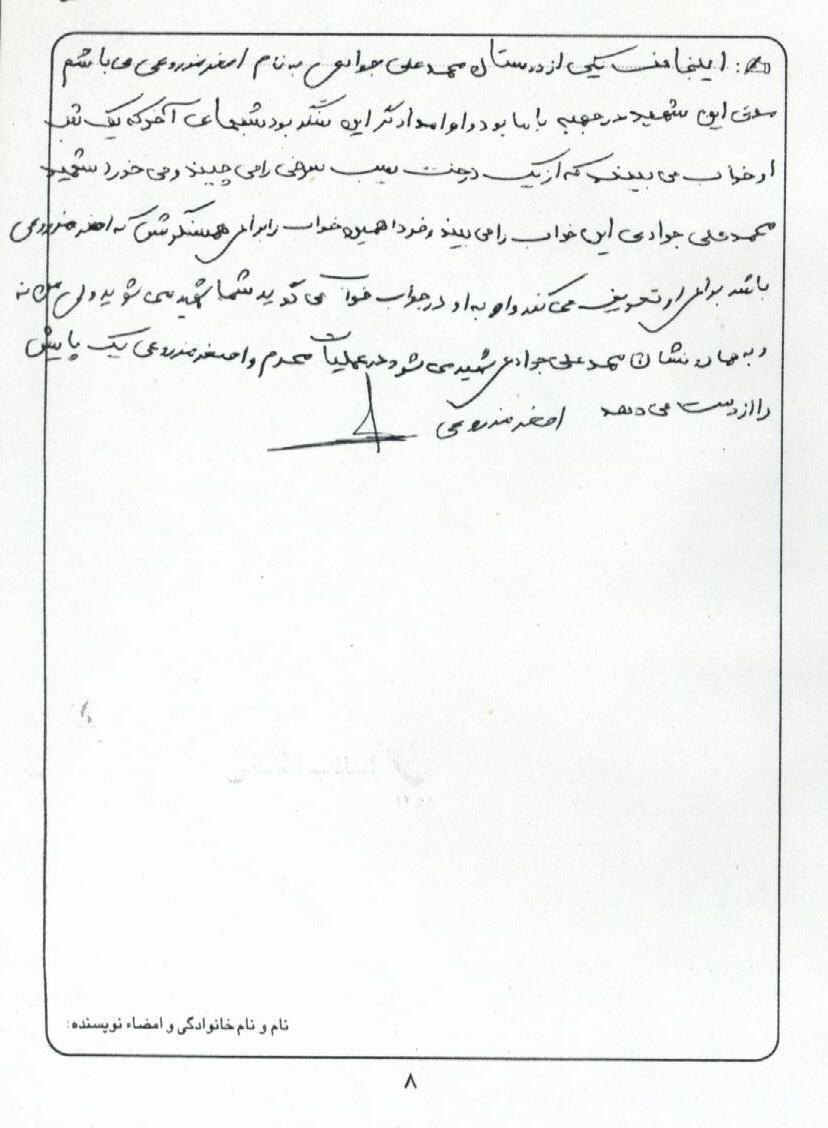 اینجانب یکی از دوستان محمد علی جوادی به نام اصغر مزروعی می باشم
مدتی این شهید در جبهه با ما بود و او امدادگر این سنگر بود شبهای آخر که یک شب
او خواب می بیند که از یک درخت سیب سرخی را می چیند و می خورد شهید
محمد علی جوادی این خواب را می بیند و فردا همین خواب را برای همسنگرش که اصغر مزروعی
باشد برای او تعریف می کند و او به او در جواب خواب می گوید شما شهید می شوید ولی من نه
و به همان نشان محمد علی جوادی شهید می شود در عملیات محرم و اصغر مزروعی یک پایش
را از دست می دهد اصغر مزروعی
نام و نام خانوادگی و امضاء نویسنده:
۸